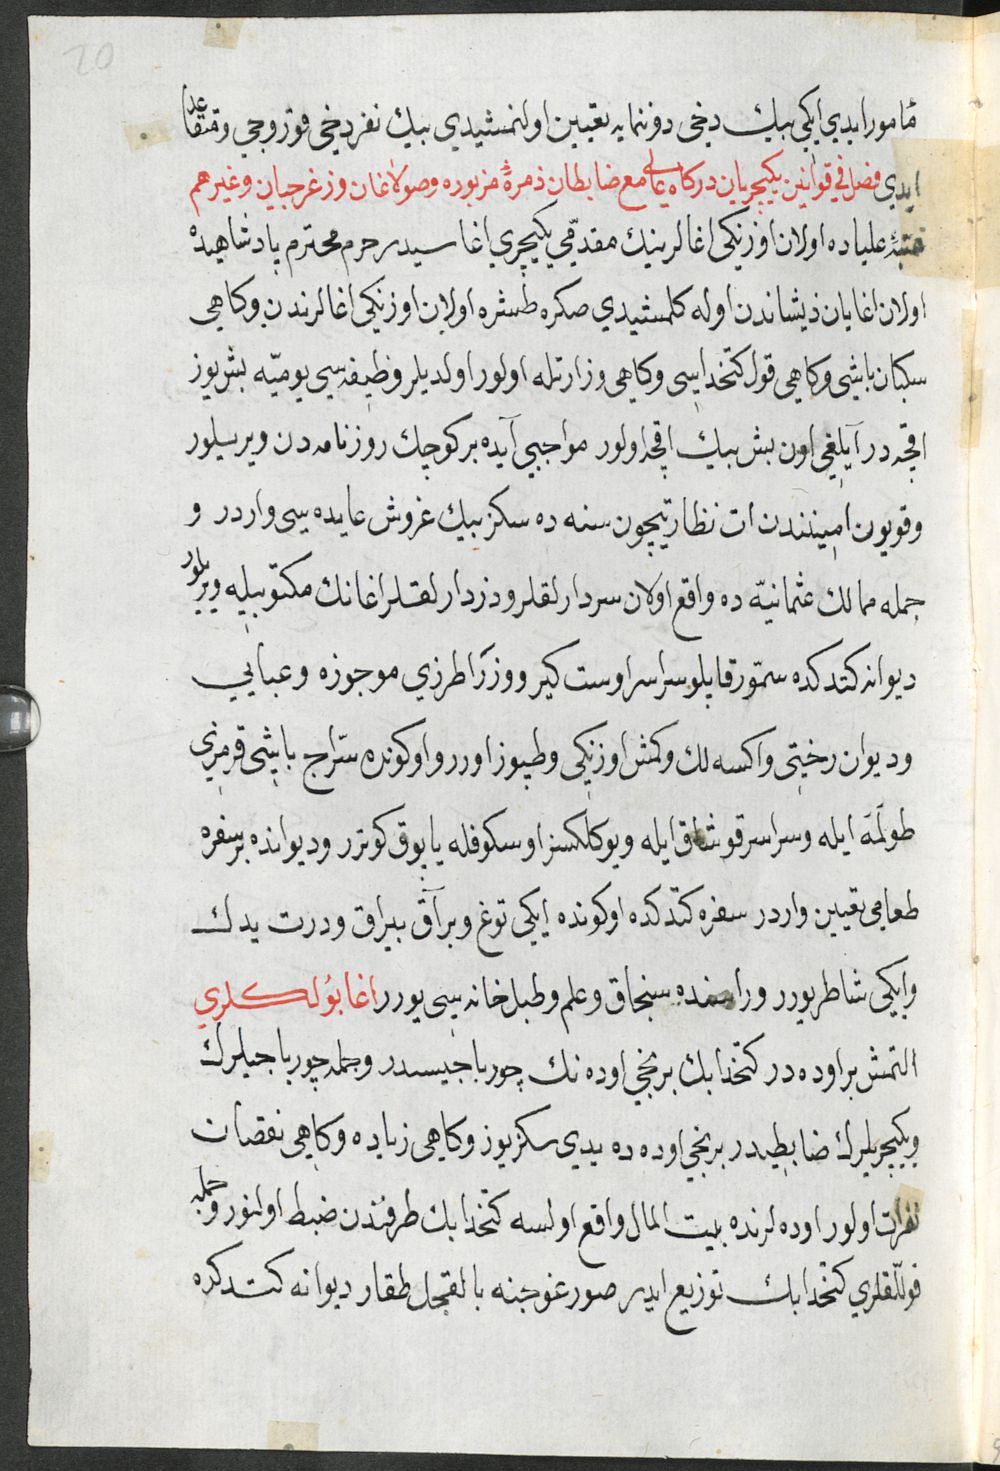 20
مأمور ايدي ايكي بيك دخي دوننمايه تعيين اولنمشيدي بيك نفر دخي قوروجي و متقاعد
ايدي فصل في قوانين يكيچريان دركاه عالي مع ضابطان زمرۀ مزبوره وصولاغان وزغرجيان وغيرهم
عتبۀ علياده اولان اوزنكي اغالرينك مقدّمي يكيچري اغاسيدر حرم محترم پادشاهيده
اولان اغايان ذيشاندن اوله كلمشيدي صكره طشره اولان اوزنكي اغالرندن وكاهي
سكبان باشي وكاهي قول كتخداسي وكاهي وزارتله اولور اولديلر وظيفه سي يوميّه بشر يوز
اقچه در آيلغي اون بش بيك اقچه اولور مواجبي آيده بر كوچك روزنامه دن ويريلور
وقويون اميننندن ات نظارتيچون سنه ده سكز بيك غروش عايده سي واردر و
جمله ممالك عثمانيّه ده واقع اولان سردارلقلر ودزدارلقلر اغانك مكتوبيله ويريلور
ديوانه كتدكده سمّور قاپلو سراسر اوست كير ووزرا طرزي موجوزه وعبايي
وديوان رختي واكسه لك وكمش اوزنكي وطپوز اورر واوكونده سرّاج باشي قرمزي
طولمه ايله وسراسر قوشاق ايله ويوكلكسز اوسكوفله ياپوق كوترر وديوانده بر سفره
طعامي تعيين واردر سفره كتدكده اوكونده ايكي توغ وبر آق بيراق ودرت يدك
وايكي شاطر يورر وراسنده سنجاق وعلم وطبلخانه سي يورر اغا بؤلكلري
التمش بر اوده در كتخدا بك برنجي اوده نك چورباجيسيدر وجمله چورباجيلرك
ويكيچريلرك ضابطيدر برنجي اوده ده يدي سكز يوز وكاهي زياده وكاهي نقصان
نفرات اولور اوده لرنده بيت المال واقع اولسه كتخدا بك طرفندن ضبط اولنور وجمله
قوللقلري كتخدا بك توزيع ايدر صورغوجنه بالقجل طقار ديوانه كتدكده